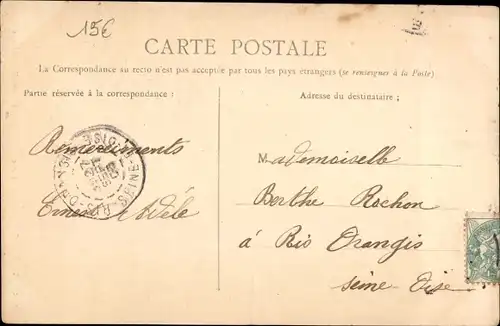 15€
CARTE POSTALE
La Correspondance au recto n'est pas acceptée par tous les pays étrangers (se renseigner à la Poste)
Partie réservée à la correspondance :
Adresse du destinataire ;
Remerciements
Ernest & Adèle
Mademoiselle
Berthe Rochon
à Ris Orangis
Seine Oise